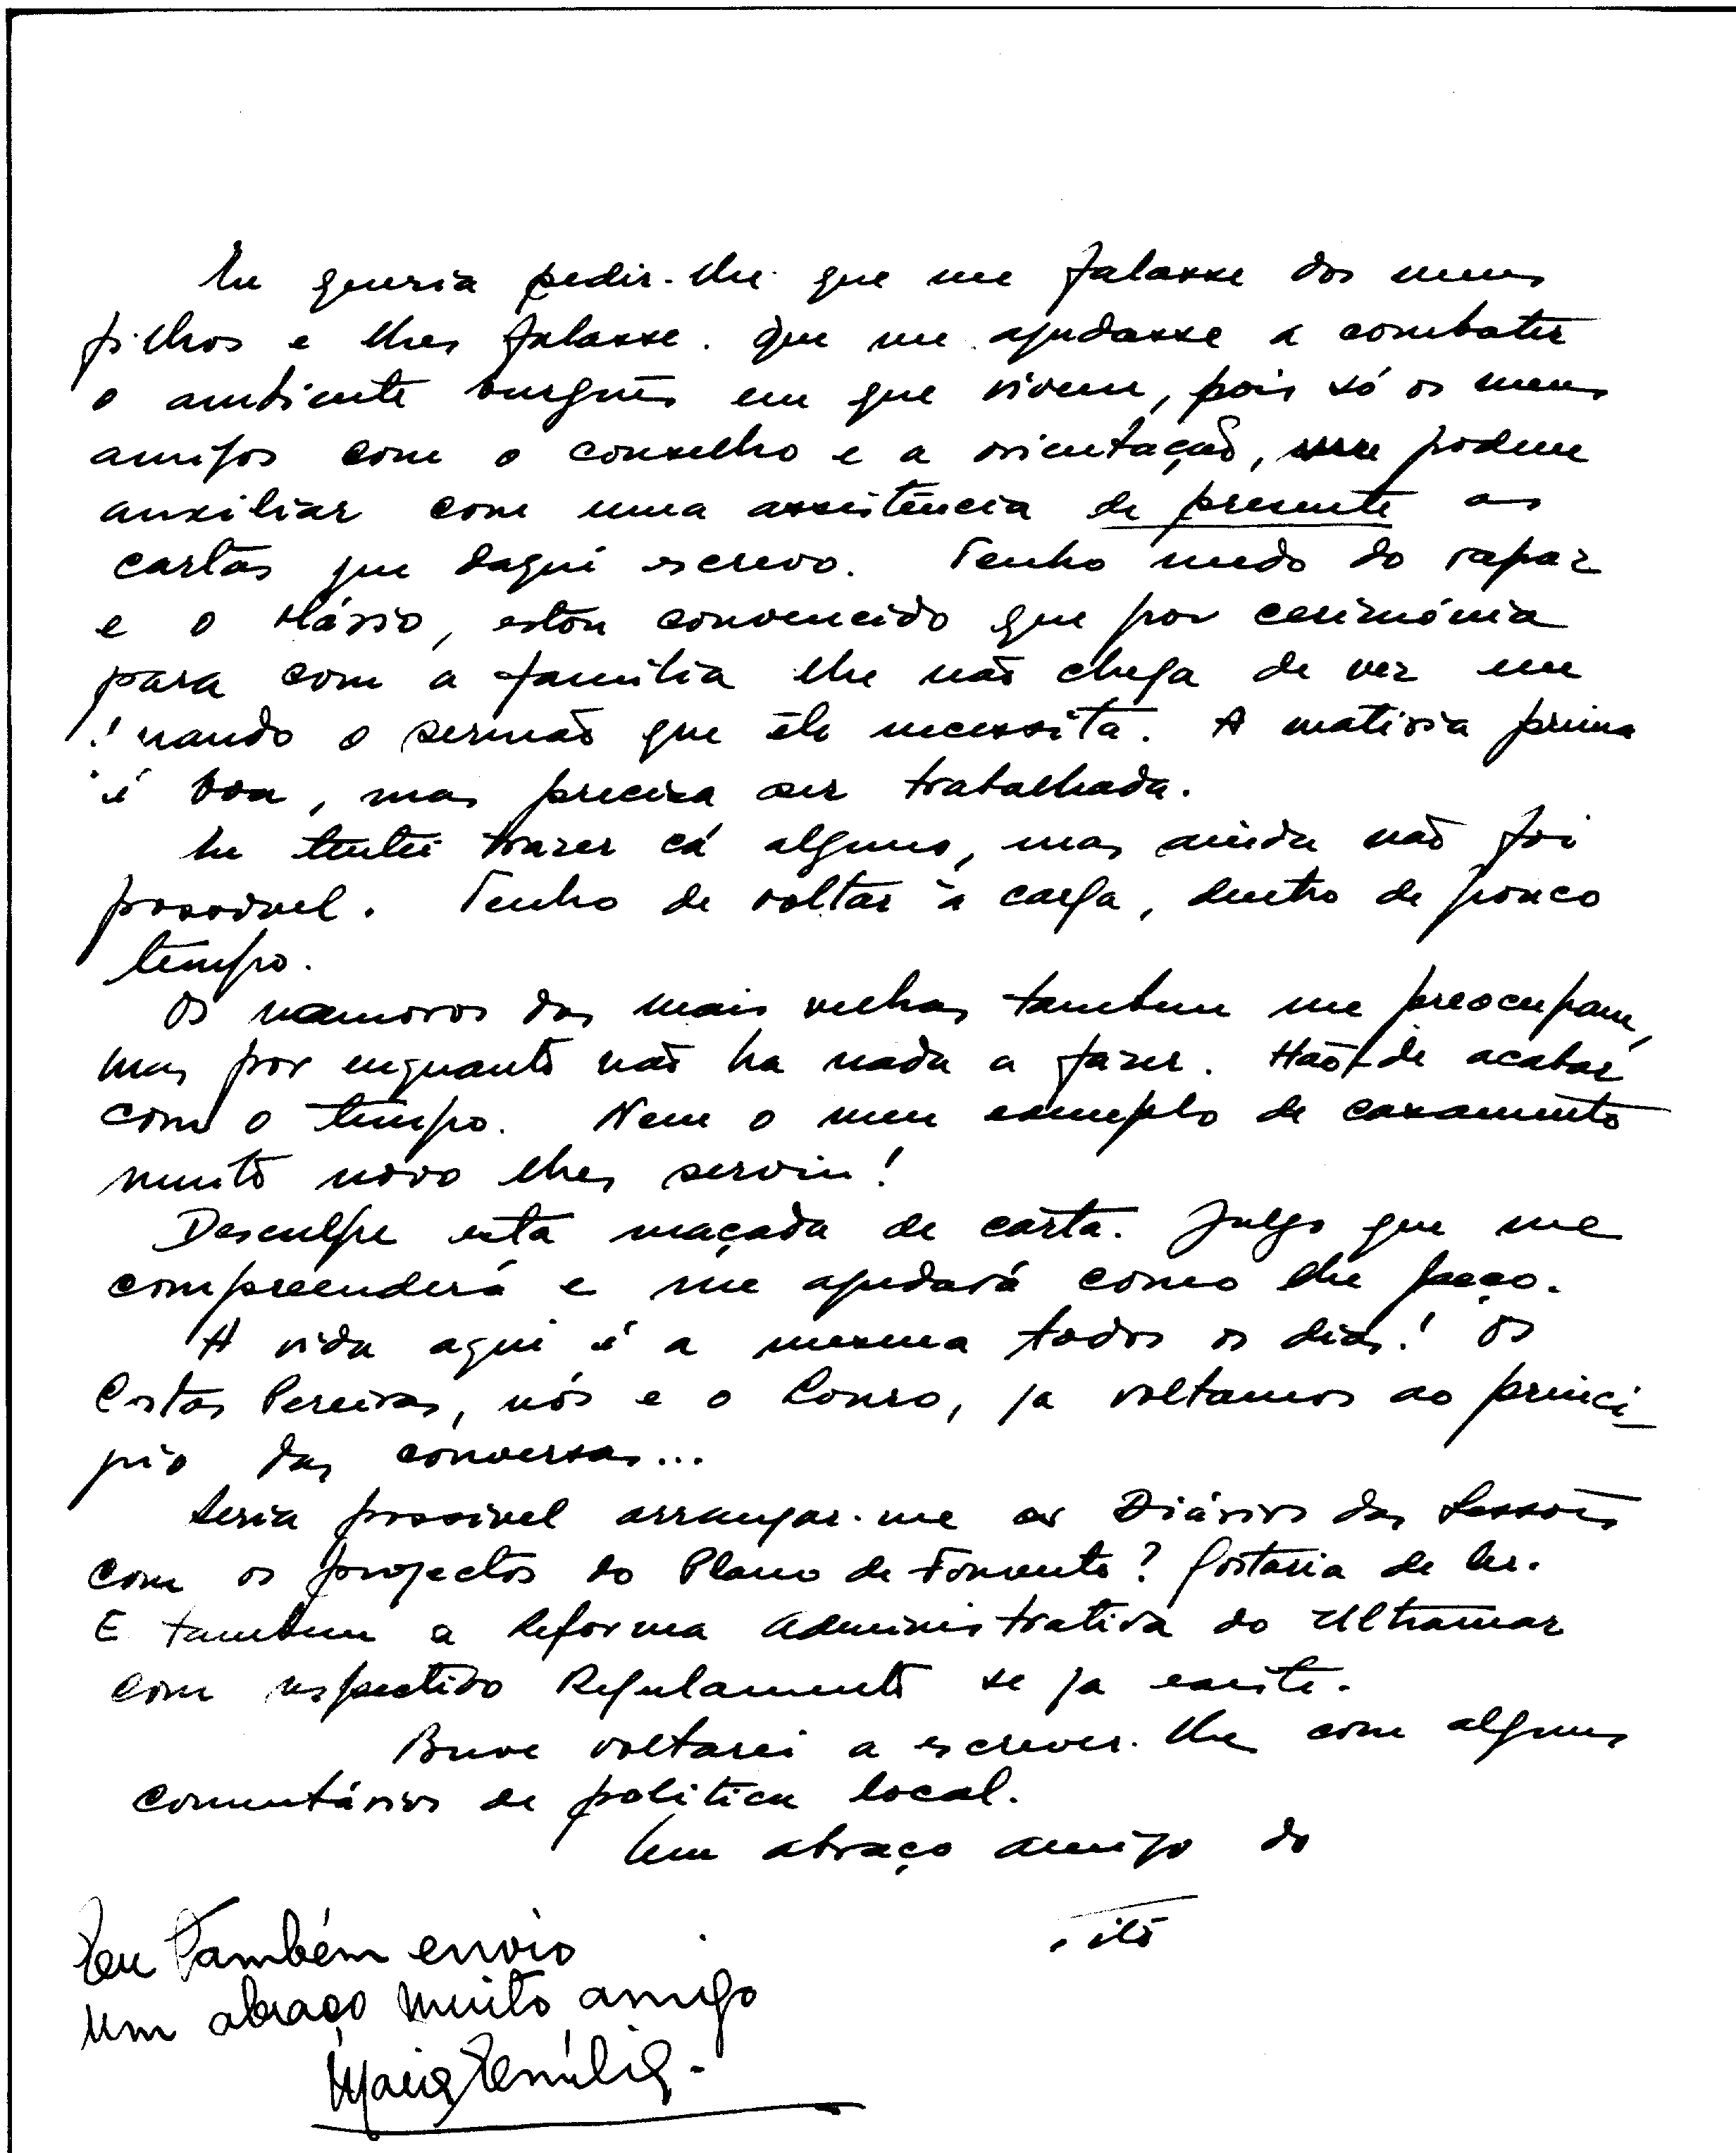 Eu queria pedir-lhe que me falasse dos meus
filhos e lhes falasse. Que me ajudasse a combater
o ambiente burguês em que vivem, pois só os meus
amigos com o conselho e a orientação, me podem
auxiliar com uma assistência de presente as
cartas que daqui escrevo. Tenho medo do rapaz
e o Mário, estou convencido que por cerimónia
para com a família lhe não chega de vez em
quando o sermão que êle necessita. A matéria prima
é boa, mas precisa ser trabalhada.
Eu tentei trazer cá alguns, mas ainda não foi
possivel. Tenho de voltar à carga, dentro de pouco
tempo.
Os namoros das mais velhas tambem me preocupam,
mas por enquanto não ha nada a fazer. Hão-de acabar
com o tempo. Nem o meu exemplo de casamento
muito novo lhes serviu!
Desculpe esta maçada de carta. Julgo que me
compreenderá e me ajudará como lhe peço.
A vida aqui é a mesma todos os dias! Os
Costas Pereiras, nós e o Louro, ja voltamos ao princi-
pio das conversas...
Seria possivel arranjar-me os Diários das Sessões
com os projectos do Plano de Fomento? Gostaria de ler.
E tambem a Reforma Administrativa do Ultramar
com respectivo Regulamento se ja existe.
Breve voltarei a escrever-lhe com alguns
comentários de politica local.
Um abraço amigo do
Eu também envio
um abraço muito amigo
Maria Emília.